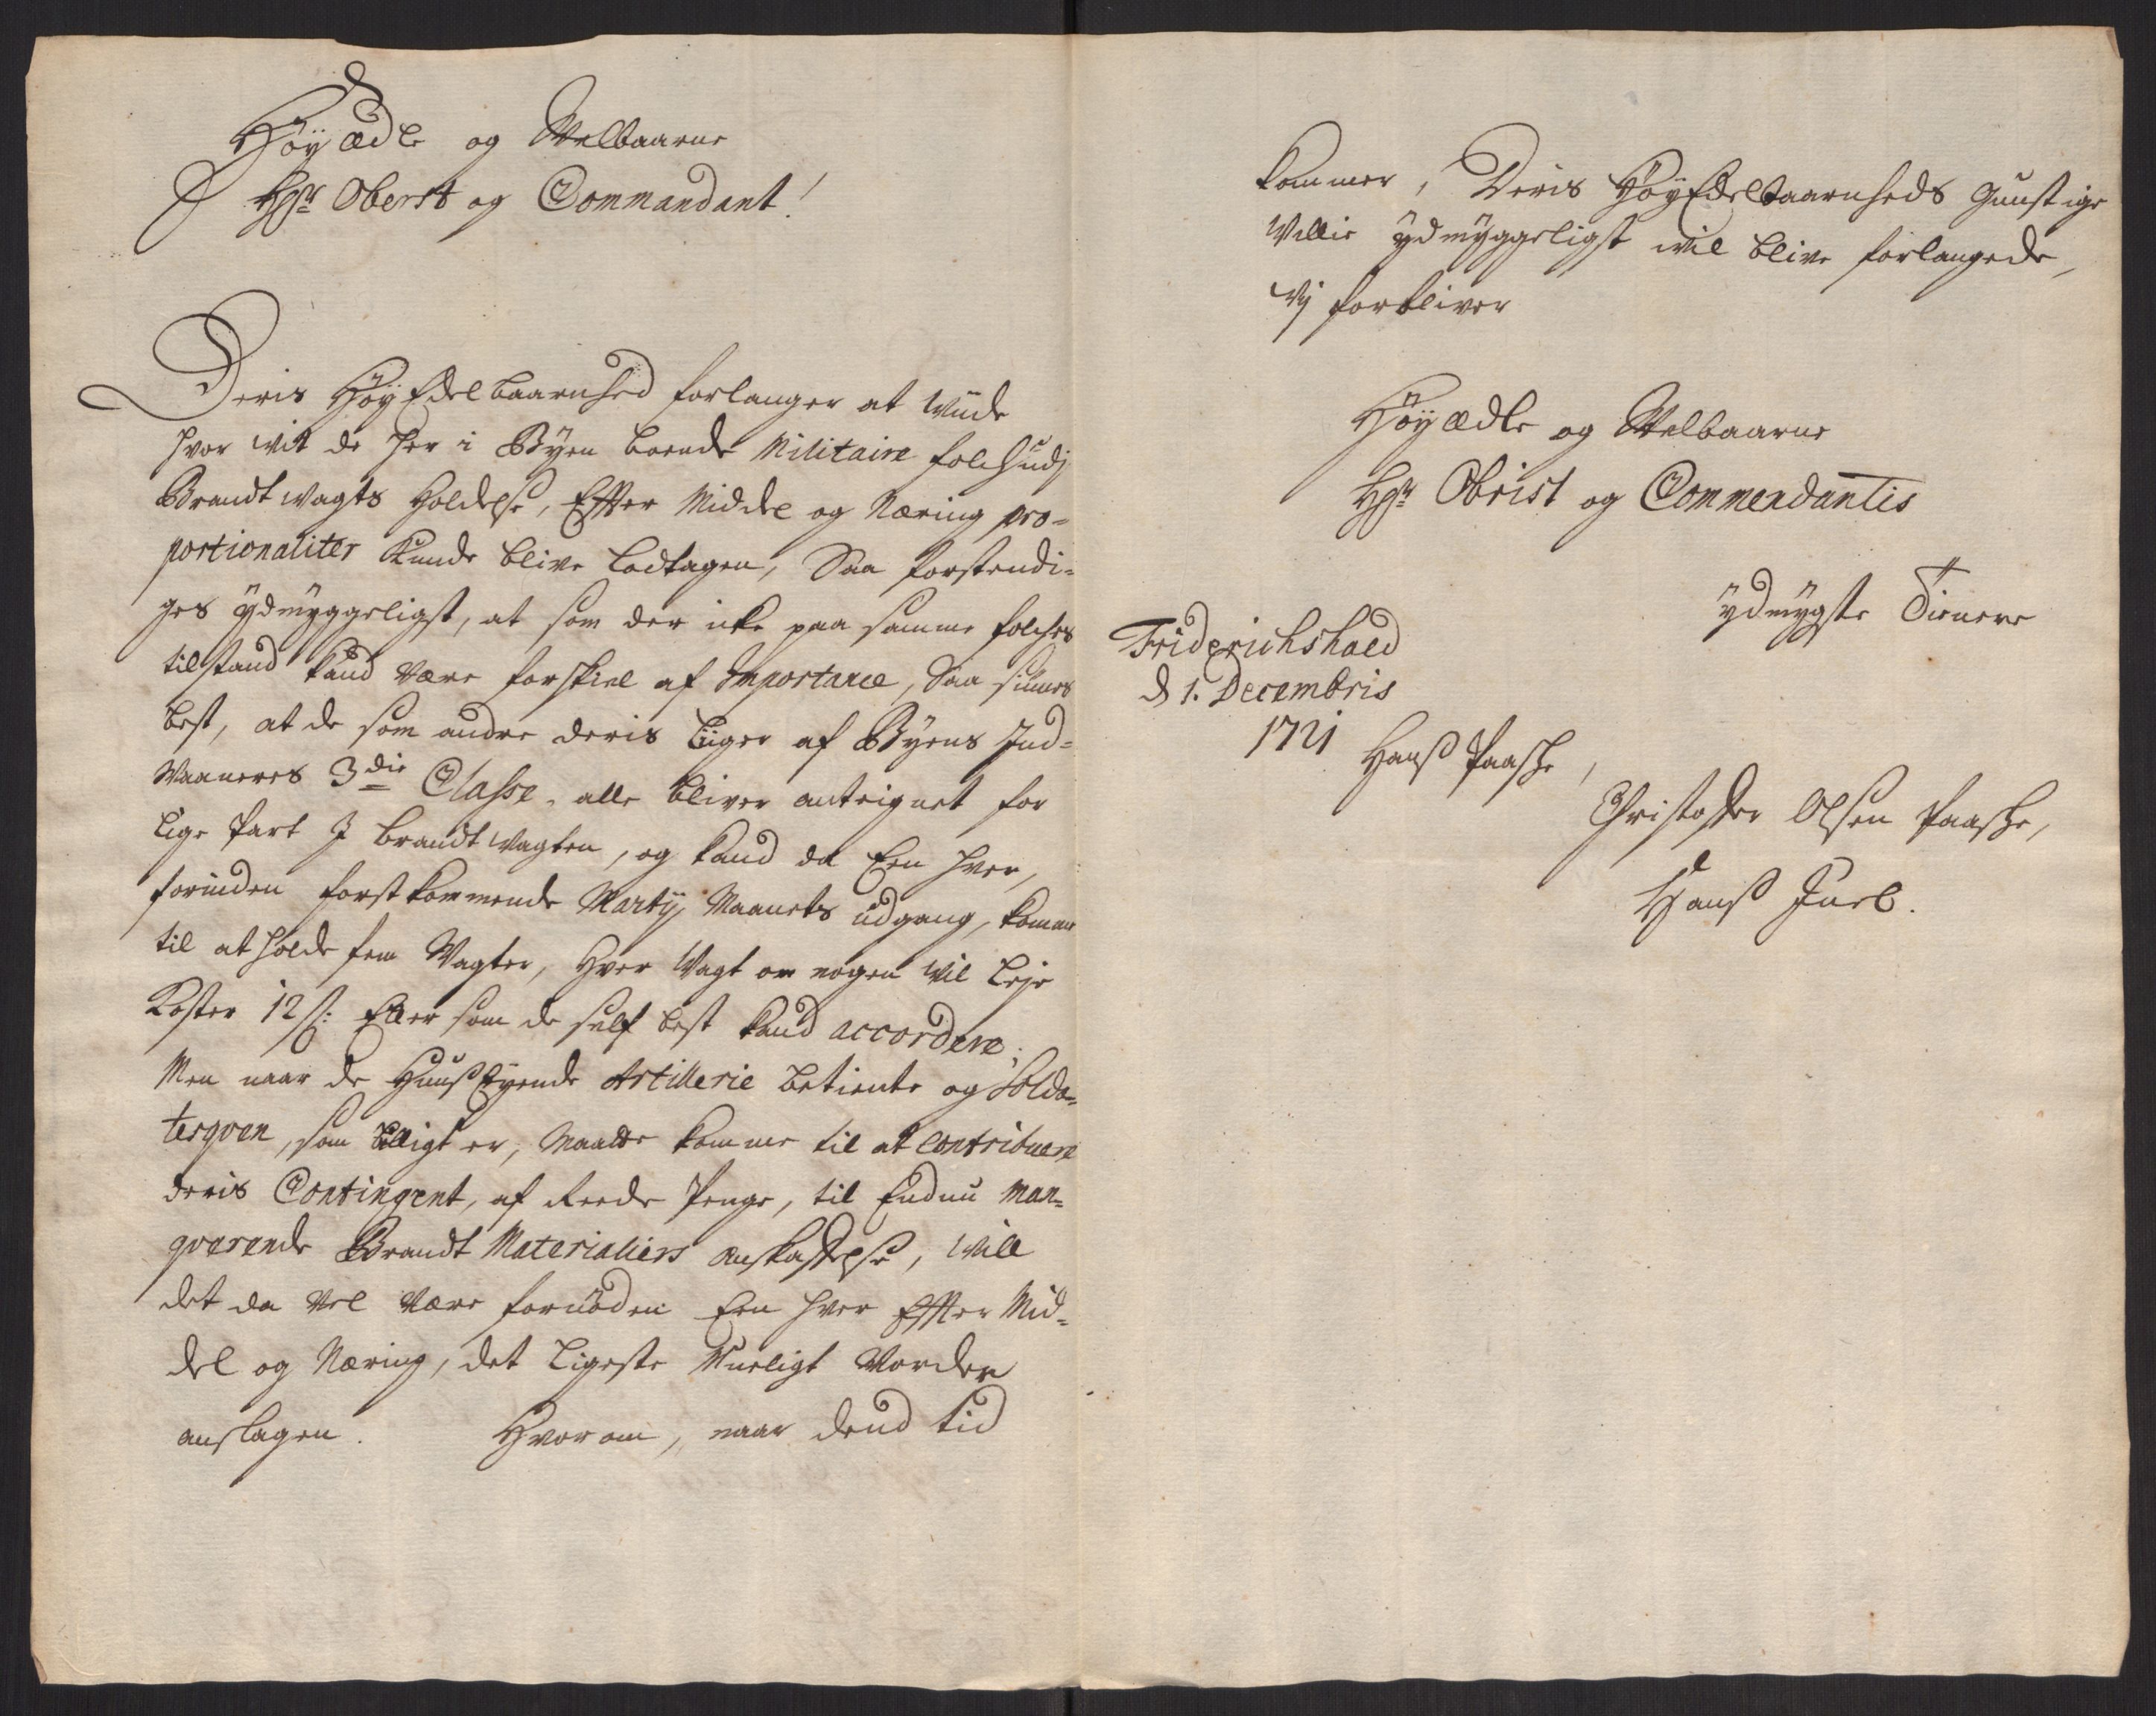 Høyædle og Welbaarne
Hr: Oberst og Commandant!
Deris HøyEdelbaarnhed forlanger at wiide
hvor wit de her i Byen boende Militaire folch udj
Brandt wagts Holdelse, Effter Middel og Næring pro-
portionaliter Kunde blive Ladtagen, Saa forstendi-
ges ÿdmÿggeligst, at som der icke paa samme folches
tilstand kand være forskiel af Importance, Saa siunes
best, at de som andre deris liiger af Byens Ind-
Waaneres 3die Classe, alle bliver anteignet for
Lige Part I brandt wagten, og kand da Een hver,
forinden forstkommende Martÿ Maanets udgang, komme
til at holde fem Wagter, hver Wagt om nogen wil leje
Koster 12 s: Eller som de self best kand accordere;
Men naar de HuusEyende Artillerie betiente og Solda-
tesqven, som billigt er, maatte komme til at Contribuere
deris Contingent, af Reede Penge, til Endnu man-
qverende Brandt Materialiers anskaffelse, will
det da vel være fornøden Een hver Effter Mid-
del og Næring, det Ligeste Mueligt Worder
anslagen. Hvorom, naar dend tid
kommer, Deris HøyEdelbaarnheds Gunstige
Villie ÿdmÿggeligst wil blive forlangede,
Wj forbliver
Høyædle og Welbaarne
Hr: Obrist og Commendantis
ÿdmÿgste Tienere
Friderichshald
d 1. Decembris
1721
Hanss Paasche,
Christoffer Olsen Paasche,
Hanss Juel.